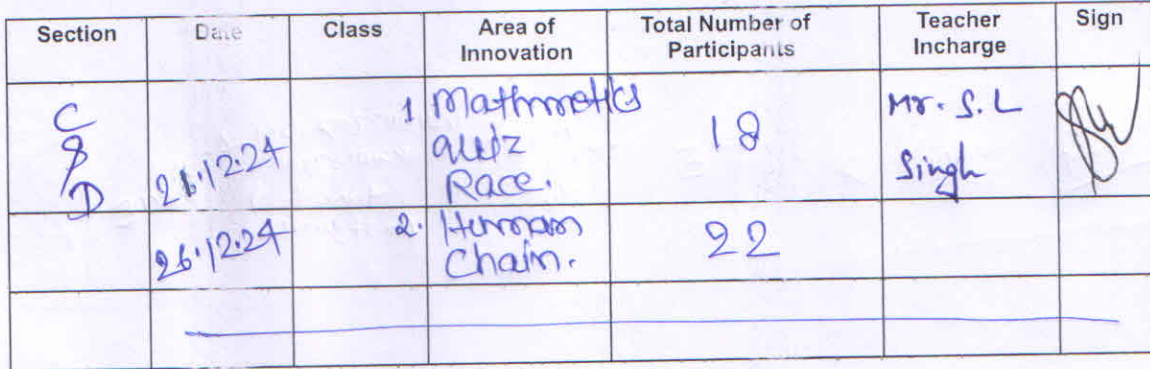 Section Date Class Area of Innovation Total Number of Participants Teacher Incharge Sign
C & D 21.12.24 1 Mathmetics quiz Race. 18 Mr. S.L Singh
26.12.24 2. Human Chain. 22